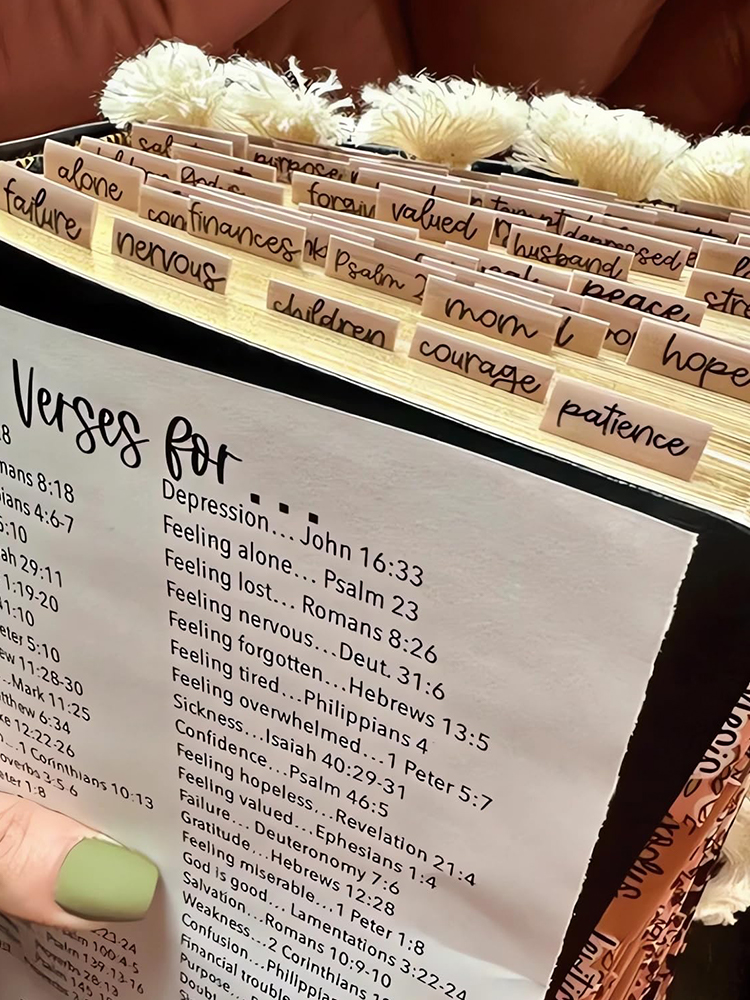 purpose
alone
forgiv
valued
failure
finances
husband
nervous
Psalm 2
peace
children
mom
hope
courage
patience
Verses for . . .
:8
mans 8:18
ians 4:6-7
5:10
ah 29:11
1:19-20
41:10
eter 5:10
ew 11:28-30
...Mark 11:25
tthew 6:34
ke 12:22-26
...1 Corinthians 10:13
overbs 3:5-6
eter 1:8
:23-24
Psalm 100:4-5
Psalm 139:13-16
Proverbs 28:13
Depression... John 16:33
Feeling alone... Psalm 23
Feeling lost... Romans 8:26
Feeling nervous...Deut. 31:6
Feeling forgotten...Hebrews 13:5
Feeling tired...Philippians 4
Feeling overwhelmed...1 Peter 5:7
Sickness...Isaiah 40:29-31
Confidence...Psalm 46:5
Feeling hopeless...Revelation 21:4
Feeling valued...Ephesians 1:4
Failure... Deuteronomy 7:6
Gratitude...Hebrews 12:28
Feeling miserable...1 Peter 1:8
God is good... Lamentations 3:22-24
Salvation...Romans 10:9-10
Weakness...2 Corinthians
Confusion...Philippian
Financial trouble
Purpose...
Doubt